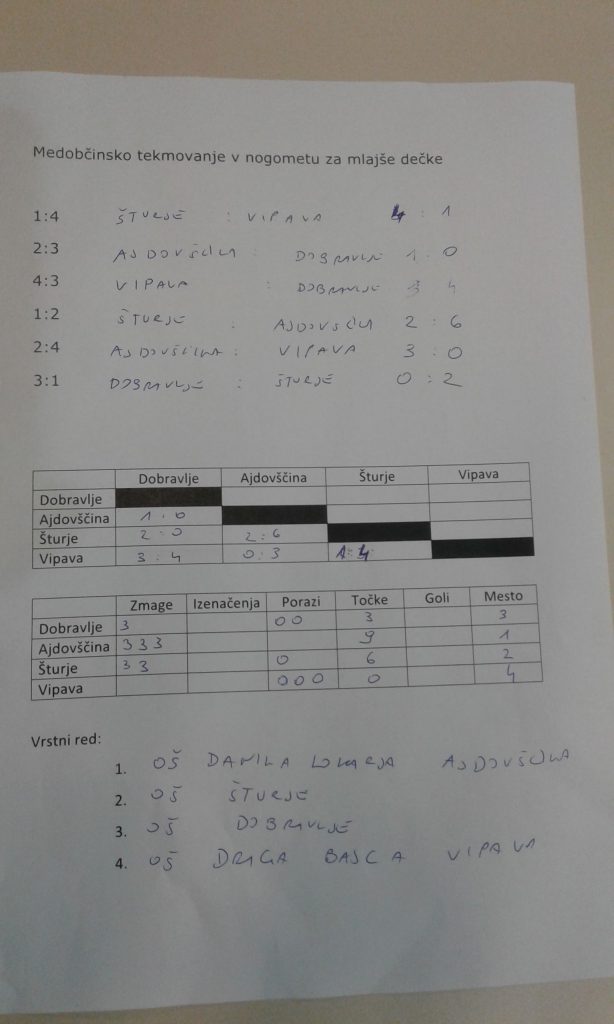 Medobčinsko tekmovanje v nogometu za mlajše dečke
1:4 ŠTURJE : VIPAVA 4 : 1
2:3 AJDOVŠČINA : DOBRAVLJE 1 : 0
4:3 VIPAVA : DOBRAVLJE 3 4
1:2 ŠTURJE : AJDOVŠČIN 2 : 6
2:4 AJDOVŠČINA : VIPAVA 3 : 0
3:1 DOBRAVLJE : ŠTURJE 0 : 2
Dobravlje Ajdovščina Šturje Vipava
Dobravlje
Ajdovščina 1 : 0
Šturje 2 : 0 2 : 6
Vipava 3 : 4 0 : 3 1 : 4
Zmage Izenačenja Porazi Točke Goli Mesto
Dobravlje 3 0 0 3 3
Ajdovščina 3 3 3 9 1
Šturje 3 3 0 6 2
Vipava 0 0 0 0 4
Vrstni red:
1. OŠ DANILA LOKARJA AJDOVŠČINA
2. OŠ ŠTURJE
3. OŠ DOBRAVLJE
4. OŠ DRAGA BAJCA VIPAVA